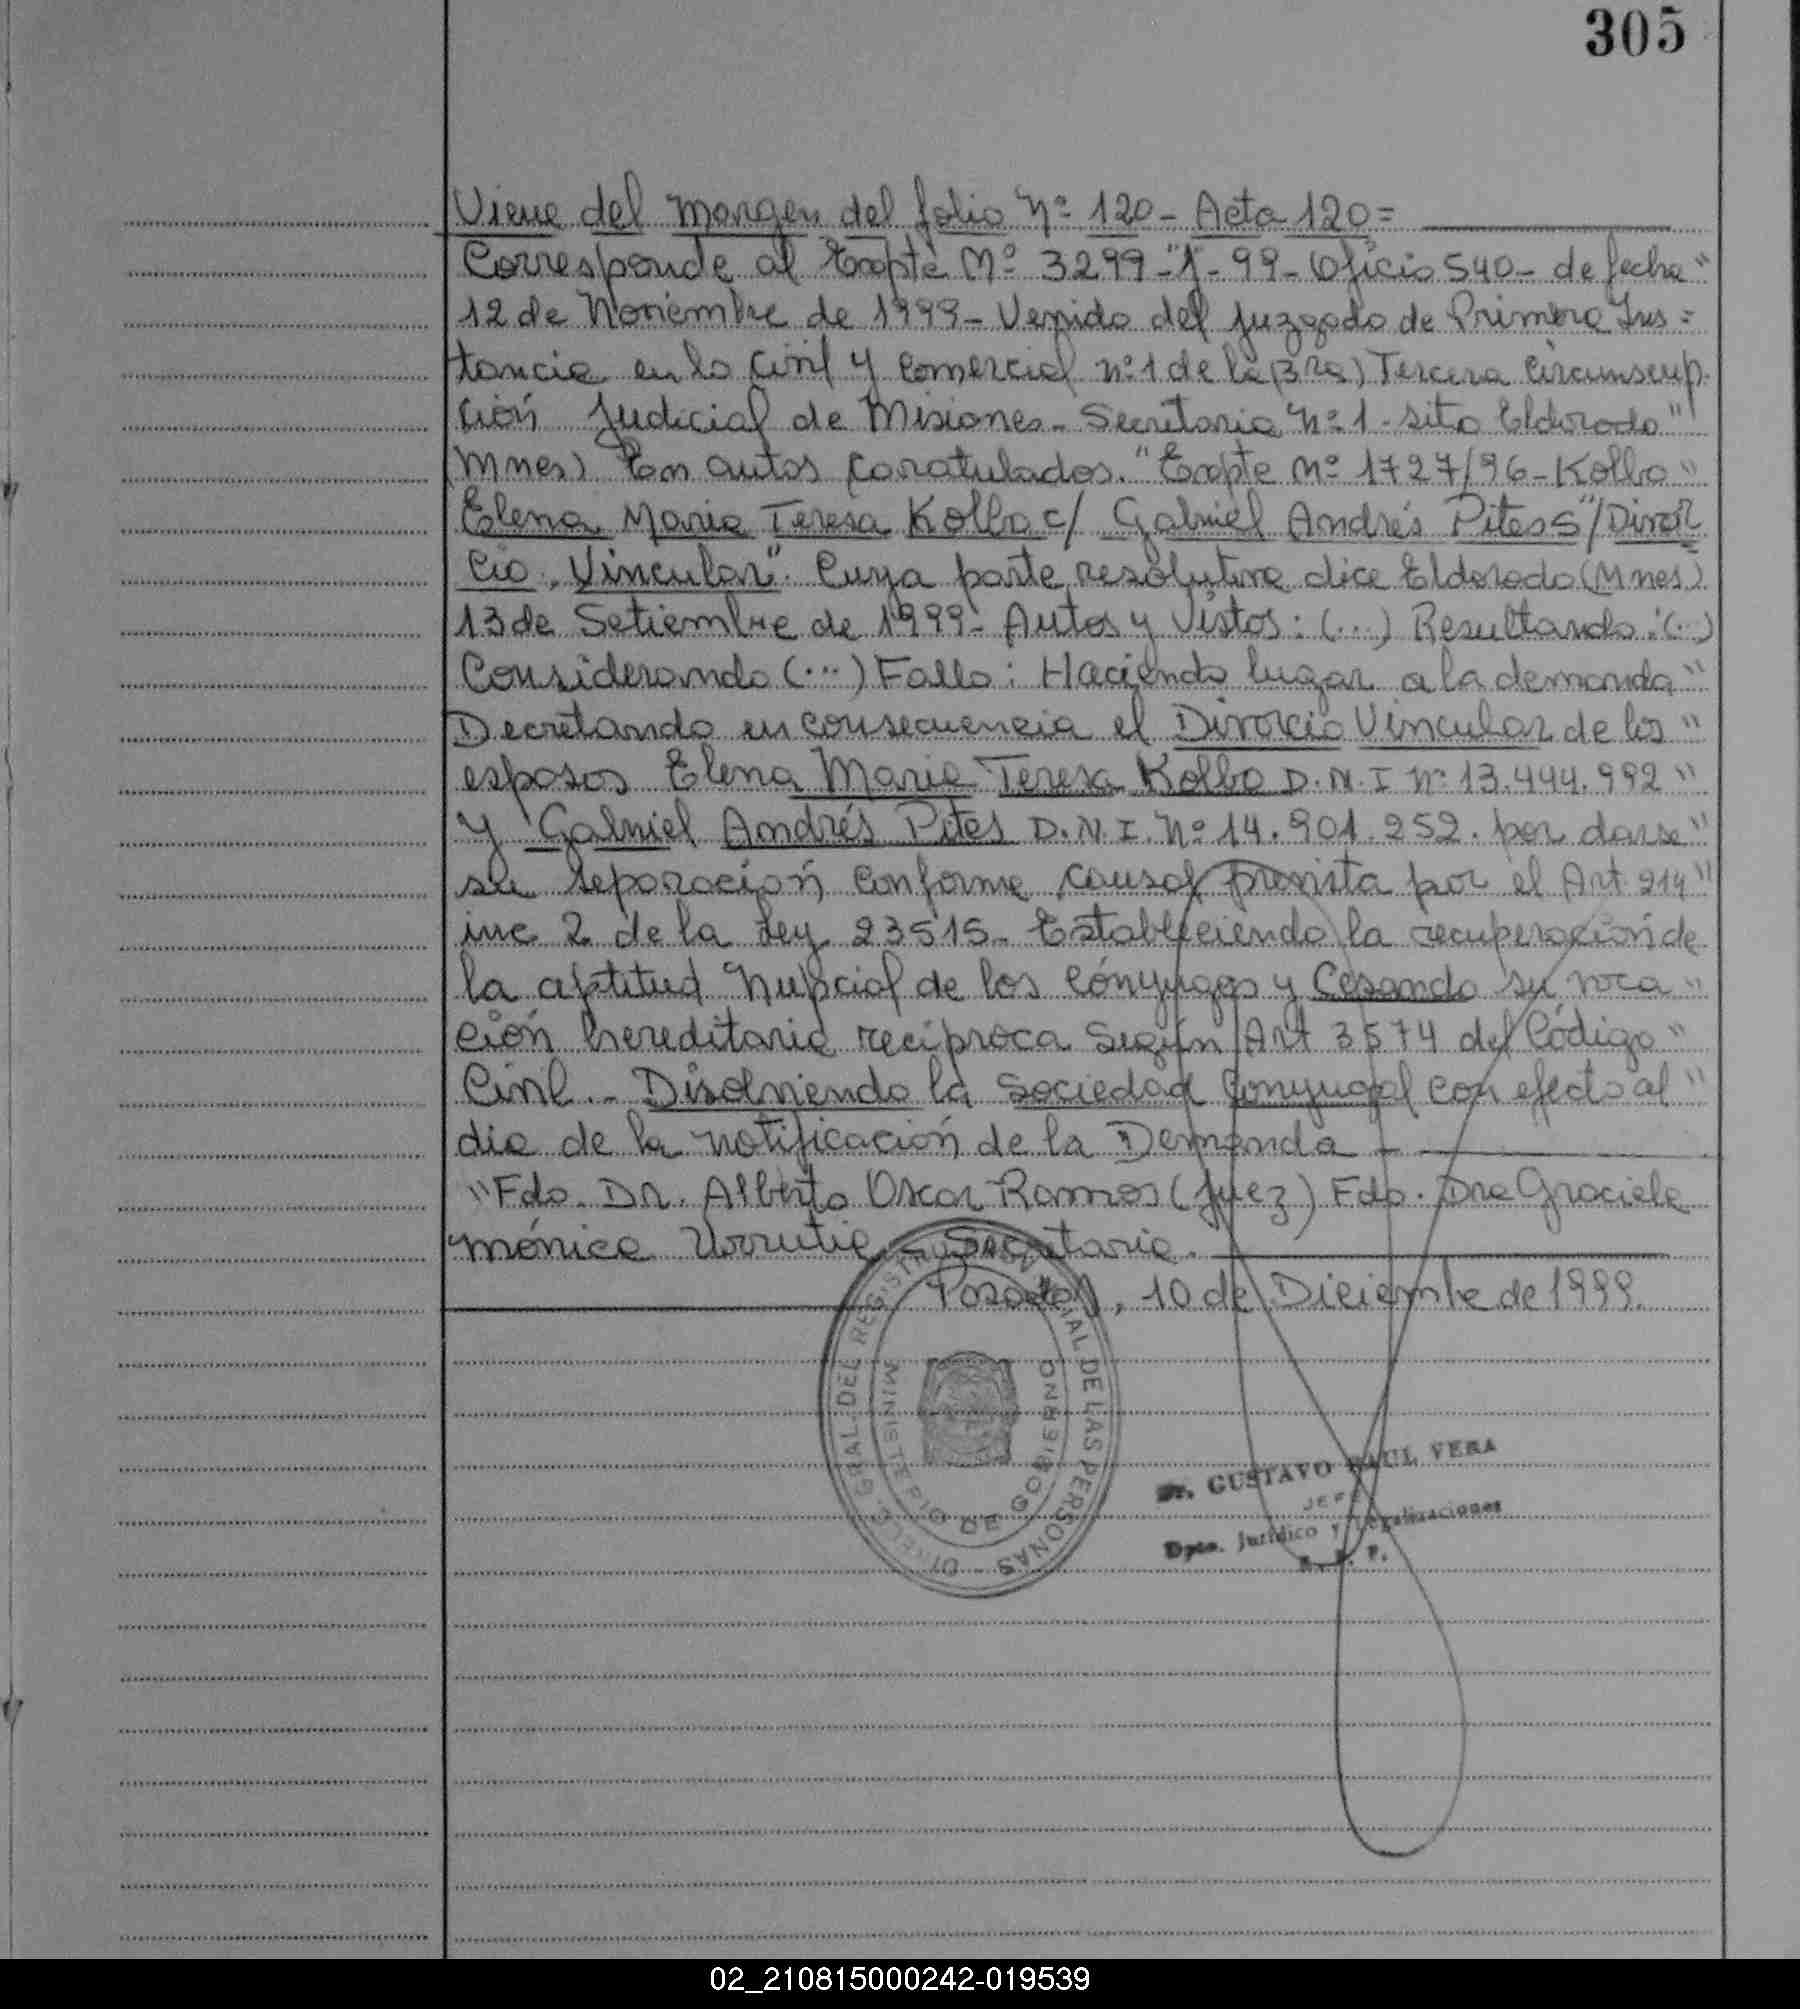 305
Viene del Margen del folio Nº 120 - Acta 120=
Corresponde al Expte Nº 3299-"J"-99- Oficio 540- de fecha "
12 de Noviembre de 1999- Venido del Juzgado de Primera Ins=
tancia en lo Civil y Comercial nº1 de la (3ra) Tercera Circunscrip-
ción Judicial de Misiones- Secretaria Nº1- sito Eldorado"
Mnes) En autos caratulados. "Expte Nº 1727/96- Kolbo"
Elena Maria Teresa Kolbo c/ Gabriel Andrés Pites S"/Divor
cio Vincular". Cuya parte resolutiva dice Eldorado (Mnes)
13 de Setiembre de 1999- Autos y Vistos: (...) Resultando: (..)
Considerando (...) Fallo: Haciendo lugar a la demanda"
Decretando en consecuencia el Divorcio Vincular de los "
esposos Elena Maria Teresa Kolbo D.N.I Nº 13.444.992 "
Y Gabriel Andrés Pites D.N.I. Nº 14.901.252. por darse"
su separación conforme causal prevista por el Art 214"
inc 2 de la Ley 23515- Estableciendo la recuperación de
la aptitud Nupcial de los Cónyuges y Cesando su voca "
ción hereditaria recíproca Según Art 3574 del Código "
Civil.- Disolviendo la Sociedad Conyugal con efecto al "
dia de la notificación de la Demanda -
"Fdo. DR. Alberto Oscar Ramos (Juez) Fdo. Dra Graciela
Mónica Urrutia - Secretaria.
Posadas, 10 de Diciembre de 1999.
DIREC. GRAL DEL REGISTRO PROVINCIAL DE LAS PERSONAS
MINISTERIO DE GOBIERNO
Dr. GUSTAVO RAUL VERA
JEFE
Dpto. Jurídico y Legalizaciones
R. P. P.
02_210815000242-019539